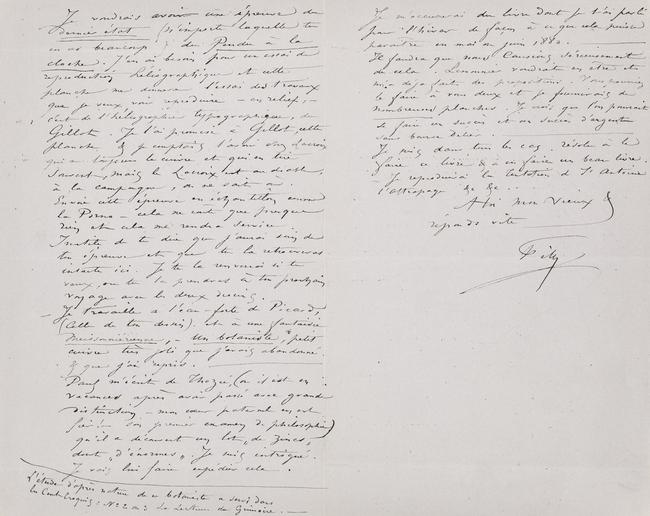 Je voudrais avoir une épreuve du
dernier état (n'importe laquelle tu
en as beaucoup) du Pendu à la
cloche. J'en ai besoin pour un essai de
reproduction héliographique et cette
planche me donnera l'essai des travaux
que je veux voir reproduire – en relief, –
c'est de l'héliographie typographique, de
Gillot. Je l'ai promise à Gillot cette
planche & je comptais l'avoir chez Lacroix
qui a toujours le cuivre et qui en tire
souvent, mais le Lacroix est au diable,
à la campagne, on ne sait où.
Envoie cette épreuve en échantillon comme
la Porno – cela ne coute que presque
rien et cela me rendra service.
Inutile de te dire que j'aurai soin de
ton épreuve et que tu la retrouveras
intacte ici. Je te la renverrai si tu
veux, ou tu la prendras à ton prochain
voyage avec les deux dessins.
– Je travaille a l'eau-forte de Picard,
(celle de ton dessin) et à une fantaisie
Meissonnièrienne, – Un botaniste, petit
cuivre très joli que j'avais abandonné
& que j'ai repris.
Paul m'écrit de Thozée, (où il est en
vacances après avoir passé avec grande
distinction – mon cœur paternel en est
fier! – son premier examen de philosophie)
qu'il a découvert un lot „de zincs,
dont „d'énormes„ Je suis intrigué.
Je vais lui faire expédier cela.
L'étude d'après nature de ce botaniste a servi dans
les Cent Croquis: No 2 ou 3 La Lecture du Grimoire. –
Je m'occuperai du livre dont je t'ai parlé
pour l'hiver de façon à ce que cela puisse
paraître en mai ou juin 1880.
Il faudra que nous causions sérieusement
de cela. Lemonnier voudrait en être et
m'a déjà fait des propositions. Vous pourriez
le faire à vous deux et je fournirais de
nombreuses planches. Je crois que l'on pourrait
se faire un succès et un succès d'argent
sans bourse délier.
Je suis dans tous les cas résolu à le
faire ce livre & à en faire un beau livre.
– Je reproduirai la tentation de St Antoine
l'attrapage &c &c..
A toi mon vieux &
réponds vite
Fély